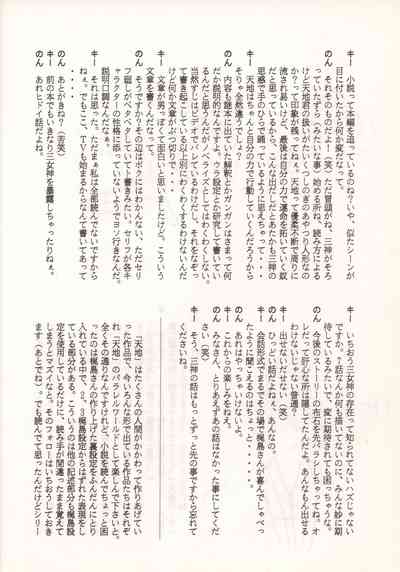 キー 小説って本編を追っているのね？いや、似たシーンが
目に付いたから何か変だなって。
のん それそのものだよー！（笑）ただ冒頭がね、三神がそろ
っていたずら（みたいな事）始める所ね、読み方による
けど天地君の扱いがたいくつしのぎの
か？って印象が残ってねぇ。天地って優柔不断で周りに
流され易いけど、最後は自分の力で運命を拓いていく奴
だと思っているから、こんな出だしだとあたかも三神の
思惑で手のひらで踊っているように思えちゃって・・・
キー 天地はちゃんと自分の力で行動していくんだろうから
そりゃ全然違うでしょ？
のん 内容も謎本に出ていた解釈とかガンガンはさまって何
だか説明的なんですよ。キャラ設定とか研究して書いてい
るんだと思うんだがノベライズとしてはわくわくしない。
当然すじはビデオでしっているわけだし、それをなぞっ
て書き起こしている以上別にわくわくするわけないんだ
けど何か文章がぶつ切りで・・・
キー 文章が男っぽくて面白いと思いましたけど。こういう
文章を書くんだなって。
のん そうですか？その辺はボクにはわかんない、ただセリ
フ廻しがベタベタひっついてト書きみたい。セリフが各キ
ャラクターの性格に添っていないようでヨソ行きなんだ。
説明口調なんだなぁ。
キー それは思った。ただまぁ私は全部読んでないですから
ねぇ。でもここ、TVも始まるからなんて書いてあって
・・・・
のん あとがきね？（苦笑）
キー 前の本でもいきなり三女神を暴露しちゃったりねぇ。
のん あれヒドイ話だよね
キー いちおう三女神の存在って知られてないハズじゃない
ですか。？話なんか何も描いてないのに、みんな妙に期
待しているみたいで、変に期待されても困っちゃうな。
のん 今後のストーリーの布石を先バラシしちゃってね。オ
レだって肝心な所は隠してたんだよ。あんなもん出せる
わけないじゃない普通？
キー 出せないだせない（笑）
のん ひっどい話だよねぇ、あんなの。
キー 会話形式でまるでその場で梶島さんが喜んでしゃべっ
たように聞こえるのはちょっと・・・・・。
のん あれはやっちゃいけないよ。
キー これからの楽しみをねぇ。
のん みなさん、とりあえずあの話はなかった事にしてくだ
さい（笑）
キー そう、三神の話はもっとずっと先の事ですから忘れて
くださいね。
「天地」はたくさんの人間がかかわって作りあげてい
った作品で、今いろんな形で出ている作品たちはそれぞ
れ「天地」のパラレルワールドとして楽しんで下さいと。
全くその通りなんですけれど、小説を読んでちょっと困
ったのは梶島さんの作り上げた裏設定をふんだんにとり
入れている中で、２、３梶島設定からはずれた表現をし
ている部分がある。こういうのは他の記述部分も梶島設
定を使用しているだけに、読み手が間違ったまま覚えて
しまうとマズイなと。そのフォローはいちおうしておき
ます（あとでね）。でも読んでて思ったんだけどシリー